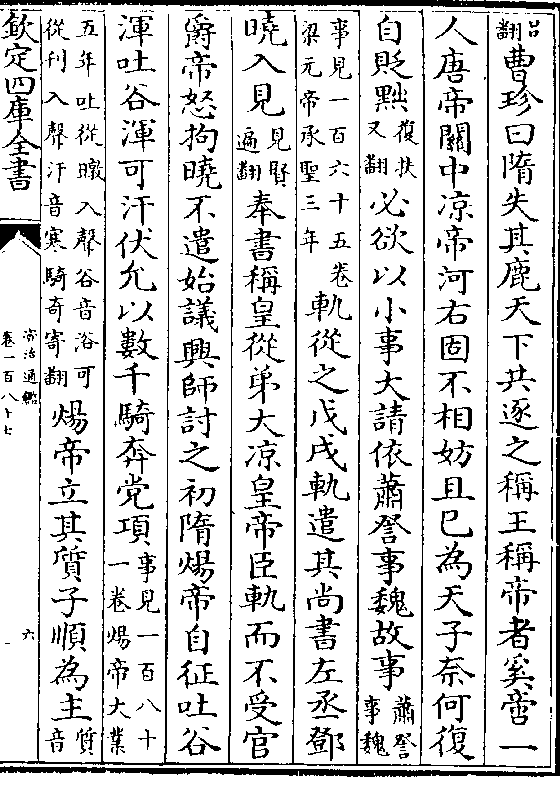 吕翻曹珍曰隋失其鹿天下共逐之稱王稱帝者奚啻一
人唐帝關中凉帝河右固不相妨且已為天子奈何復
自貶黜復扶又翻必欲以小事大請依蕭詧事魏故事蕭詧事魏
事見一百六十五卷梁元帝承聖三年軌從之戊戌軌遣其尚書左丞鄧
曉入見見賢遍翻奉書稱皇從弟大凉皇帝臣軌而不受官
爵帝怒拘曉不遣始議興師討之初隋煬帝自征吐谷
渾吐谷渾可汗伏允以數千騎奔党項事見一百八十一卷煬帝大業
五年吐從暾入聲谷音浴可從刊入聲汗音寒騎奇寄翻煬帝立其質子順為主質音
欽定四庫全書
資治通鑑
卷一百八十七
六